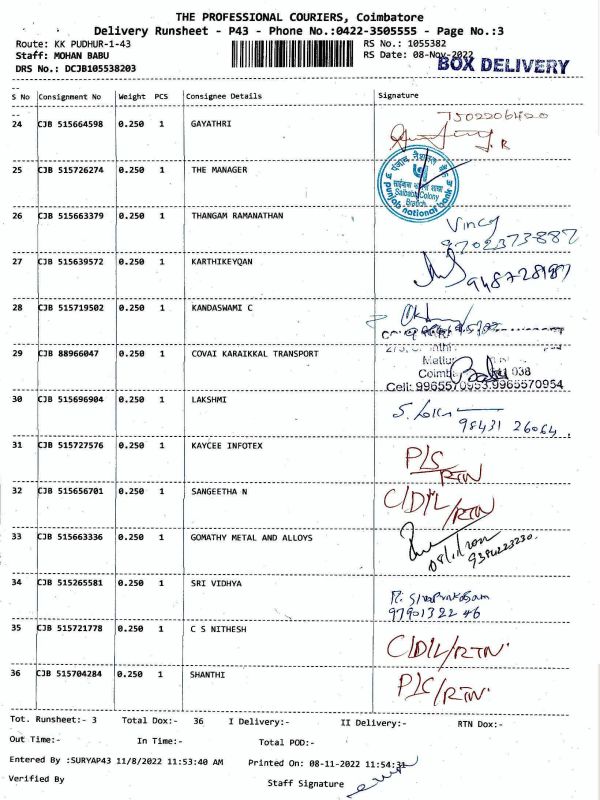 THE PROFESSIONAL COURIERS, Coimbatore
Delivery Runsheet - P43 - Phone No.:0422-3505555 - Page No.:3
Route: KK PUDHUR-1-43 RS No.: 1055382
Staff: MOHAN BABU RS Date: 08-Nov-2022
DRS No.: DCJB105538203 BOX DELIVERY
S No Consignment No Weight PCS Consignee Details Signature
24 CJB 515664598 0.250 1 GAYATHRI 7502206420
25 CJB 515726274 0.250 1 THE MANAGER
Saibaba Colony
Branch
punjab national bank
26 CJB 515663379 0.250 1 THANGAM RAMANATHAN Vincy
9702373887
27 CJB 515639572 0.250 1 KARTHIKEYQAN
28 CJB 515719502 0.250 1 KANDASWAMI C
29 CJB 88966047 0.250 1 COVAI KARAIKKAL TRANSPORT
Cell: 9965570953,9965570954
30 CJB 515696904 0.250 1 LAKSHMI
98431 26064
31 CJB 515727576 0.250 1 KAYCEE INFOTEX P/S
RTN
32 CJB 515656701 0.250 1 SANGEETHA N C/D/L/RTN
33 CJB 515663336 0.250 1 GOMATHY METAL AND ALLOYS
34 CJB 515265581 0.250 1 SRI VIDHYA
97901322 46
35 CJB 515721778 0.250 1 C S NITHESH C/D/L/RTN
36 CJB 515704284 0.250 1 SHANTHI P/C/RTN
Tot. Runsheet:- 3 Total Dox:- 36 I Delivery:- II Delivery:- RTN Dox:-
Out Time:- In Time:- Total POD:-
Entered By :SURYAP43 11/8/2022 11:53:40 AM Printed On: 08-11-2022 11:54:31
Verified By Staff Signature